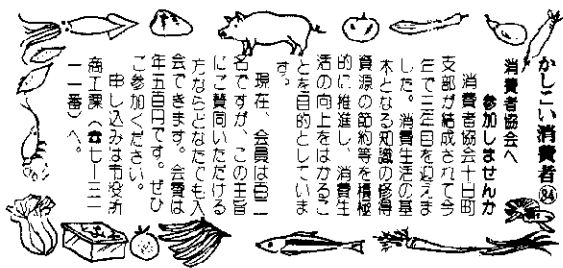 かしこい消費者㉞
消費者協会へ
参加しませんか
消費者協会十日町
支部が結成されて今
年で三年目を迎えま
した。消費生活の基
本となる知識の修得
資源の節約等を積極
的に推進し、消費生
活の向上をはかるこ
とを目的としていま
す。
現在、会員は百二
名ですが、この主旨
にご賛同いただける
方ならどなたでも入
会できます。会費は
年五百円です。ぜひ
ご参加ください。
申し込みは市役所
商工課(☎七-三一
一一番)へ。